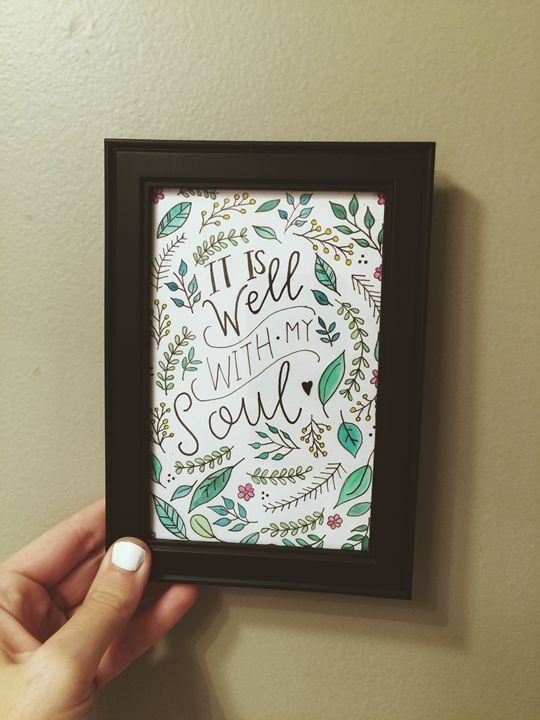 IT IS
Well
WITH • MY
Soul